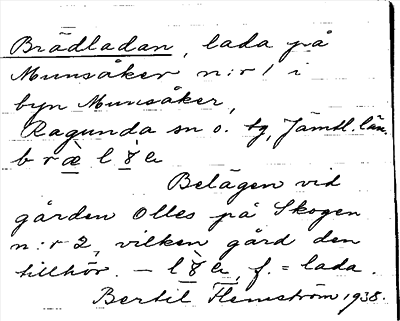 Brädladan, lada på
Munsåker n:r 1 i
byn Munsåker,
Ragunda sn o. tg, Jämtl. län.
b r æ̀ l
Belägen vid
gården Olles på Skogen
n:r 2, vilken gård den
tillhör. – f. = lada.
Bertil Flemström 1938.